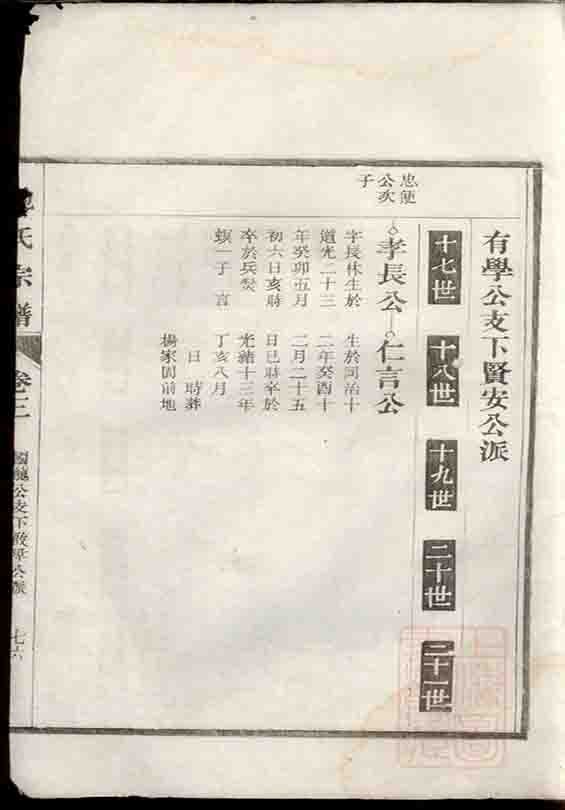 有學公支下賢安公派
十七世 十八世 十九世 二十世 二十一世
忠便
公次
子
孝長公 仁言公
字長林生於
道光二十三
年癸卯五月
初六日亥時
卒於兵燹
一子言
生於同治十
二年癸酉十
二月二十五
日巳時卒於
光緒十三年
丁亥八月
日時葬
楊家園前地
氏宗譜
卷二
公支下 公派
七六